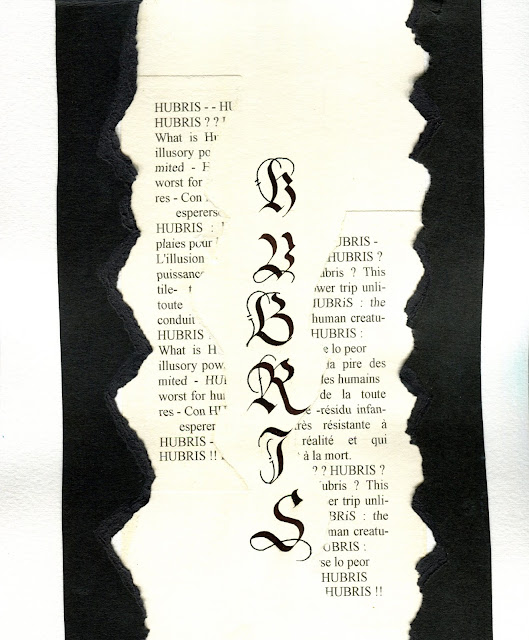 HUBRIS - - HU
HUBRIS ? ?
What is Hu
illusory po
mited - H
worst for
res - Con
esperers
HUBRIS :
plaies pour
L'illusion
puissanc
tile- t
toute
conduit
HUBRIS
What is H
illusory pow
mited - HU
worst for hu
res - Con HU
esperer
HUBRIS -
HUBRIS !!
H
U
B
R
I
S
UBRIS -
HUBRIS ?
ubris ? This
wer trip unli-
HUBRiS : the
human creatu-
HUBRIS :
e lo peor
la pire des
les humains
de la toute
e -résidu infan-
rès résistante à
réalité et qui
t à la mort.
? ? HUBRIS ?
ubris ? This
er trip unli-
BRiS : the
man creatu-
UBRIS :
se lo peor
HUBRIS
HUBRIS !!